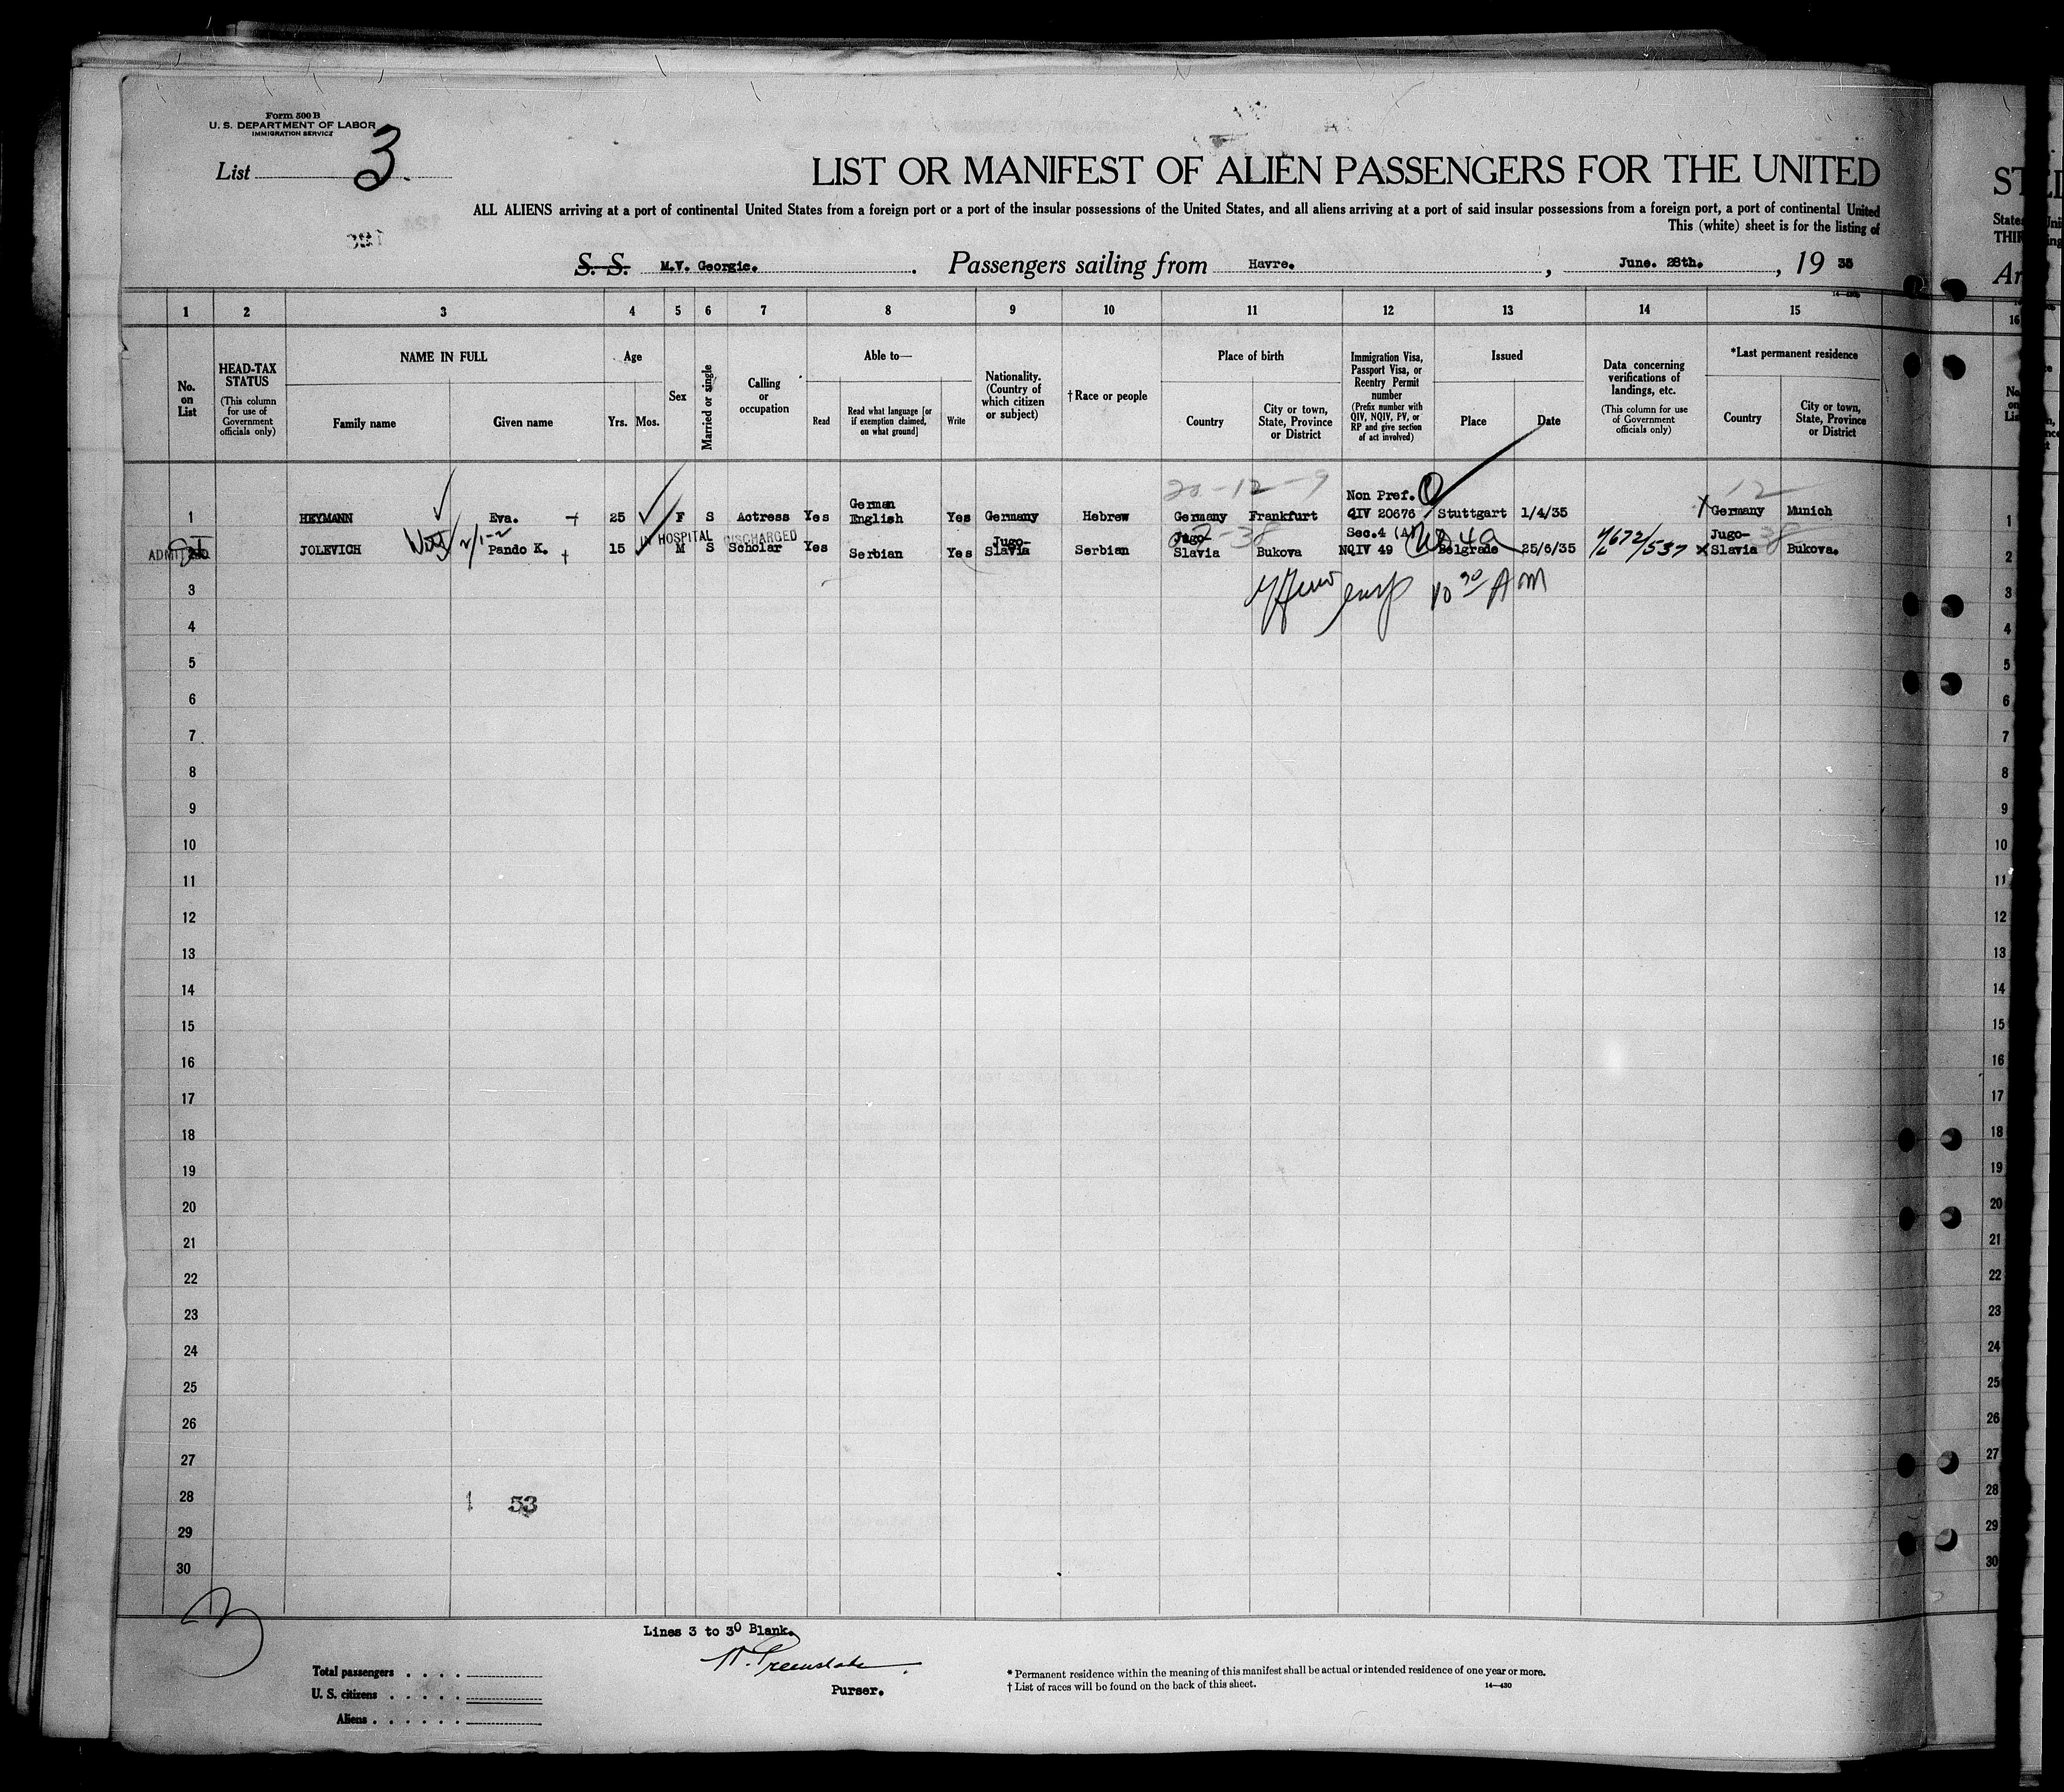 Form 500 B
U. S. DEPARTMENT OF LABOR
IMMIGRATION SERVICE
List 3.
LIST OR MANIFEST OF ALIEN PASSENGERS FOR THE UNITED
ALL ALIENS arriving at a port of continental United States from a foreign port or a port of the insular possessions of the United States, and all aliens arriving at a port of said insular possessions from a foreign port, a port of continental United
This (white) sheet is for the listing of
S. S. M.V. Georgic. Passengers sailing from Havre. , June. 28th. , 19 35
1 2 3 4 5 6 7 8 9 10 11 12 13 14 15
No. on List
HEAD-TAX STATUS (This column for use of Government officials only)
NAME IN FULL Family name Given name
Age Yrs. Mos.
Sex
Married or single
Calling or occupation
Able to— Read Read what language [or if exemption claimed, on what ground] Write
Nationality. (Country of which citizen or subject)
†Race or people
Place of birth Country City or town, State, Province or District
Immigration Visa, Passport Visa, or Reentry Permit number (Prefix number with QIV, NQIV, PV, or RP and give section of act involved)
Issued Place Date
Data concerning verifications of landings, etc. (This column for use of Government officials only)
*Last permanent residence Country City or town, State, Province or District
20-12-9 12
1 HEYMANN Eva. 25 F S Actress Yes German English Yes Germany Hebrew Germany Frankfurt Non Pref. QIV 20676 Stuttgart 1/4/35 Germany Munich
IN HOSPITAL DISCHARGED
ADMITTED
2 JOLEVICH Pando K. 15 M S Scholar Yes Serbian Yes Jugo-Slavia Serbian Jugo-Slavia Bukova Sec.4 (A) NQIV 49 Belgrade 25/6/35 Jugo-Slavia Bukova.
10 30 AM
3
4
5
6
7
8
9
10
11
12
13
14
15
16
17
18
19
20
21
22
23
24
25
26
27
28
29
30
1 53
Lines 3 to 30 Blank.
Purser.
Total passengers
U. S. citizens
Aliens
* Permanent residence within the meaning of this manifest shall be actual or intended residence of one year or more.
† List of races will be found on the back of this sheet.
14—430